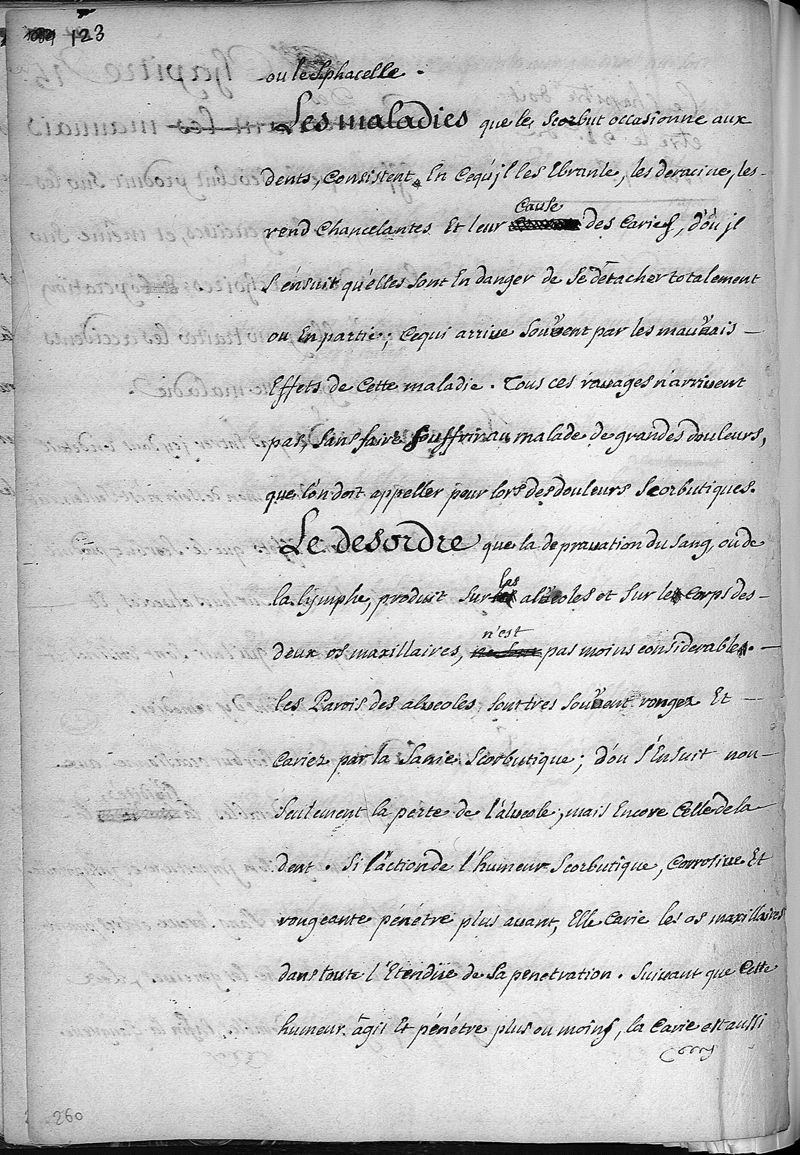 123
ou le Sphacelle .
Les maladies que le Scorbut occasionne aux
dents, Consistent En Cequ'jl les Ebranle, les deracine, les-
rend Chancelantes Et leur Cause des Caries, d'où jl
S'ensuit qu'elles sont En danger de se détacher totalement
ou En partie ; Cequi arrive souvent par les mauvais —
Effets de Cette maladie . Tous ces ravages n'arrivent
pas, sans faire souffrir au malade de grandes douleurs,
que l'on doit appeller pour lors des douleurs Scorbutiques.
Le desordre que la depravation du sang, ou de
la lymphe, produit sur les alveoles et sur le Corps des-
deux os maxillaires, n'est pas moins considerable. —
les Parois des alveoles, sont tres souvent rongez Et —
Cariez par la Sanie Scorbutique ; d'où s'Ensuit non-
Seulement la perte de l'alveole, mais Encore Celle de la
dent . Si l'action de l'humeur Scorbutique, Corrosive Et
rongeante pénétre plus avant, Elle Carie les os maxillaires
dans toute l'Etendüe de sa penetration . Suivant que Cette
humeur agit Et pénétre plus ou moins, la Carie est aussi
260